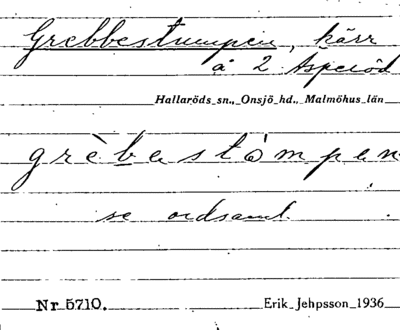 Grebbestumpen, kärr
å 2 Asperöd
Hallaröds sn., Onsjö hd., Malmöhus län
grèbastòmpen
se ordsaml.
Nr 5710. Erik Jehpsson 1936